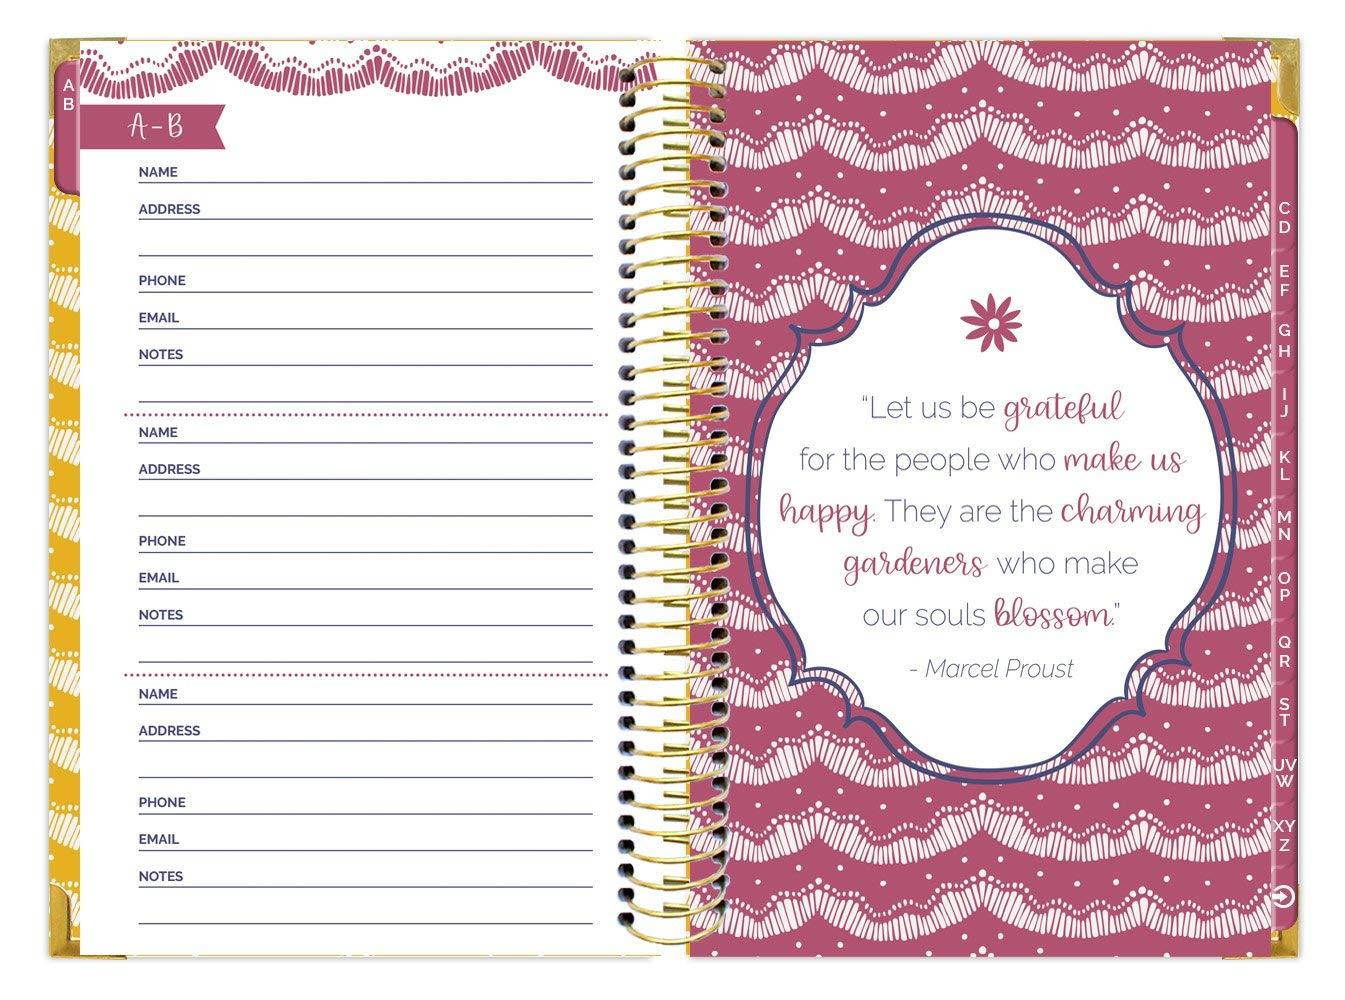 A
B
A-B
NAME
ADDRESS
PHONE
EMAIL
NOTES
NAME
ADDRESS
PHONE
EMAIL
NOTES
NAME
ADDRESS
PHONE
EMAIL
NOTES
“Let us be grateful
for the people who make us
happy. They are the charming
gardeners who make
our souls blossom.”
- Marcel Proust
C
D
E
F
G
H
I
J
K
L
M
N
O
P
Q
R
S
T
UV
W
XY
Z